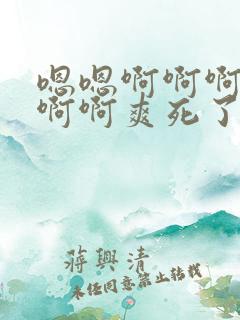 嗯嗯啊啊啊
啊啊爽死了
蒋興清
未经同意禁止转载